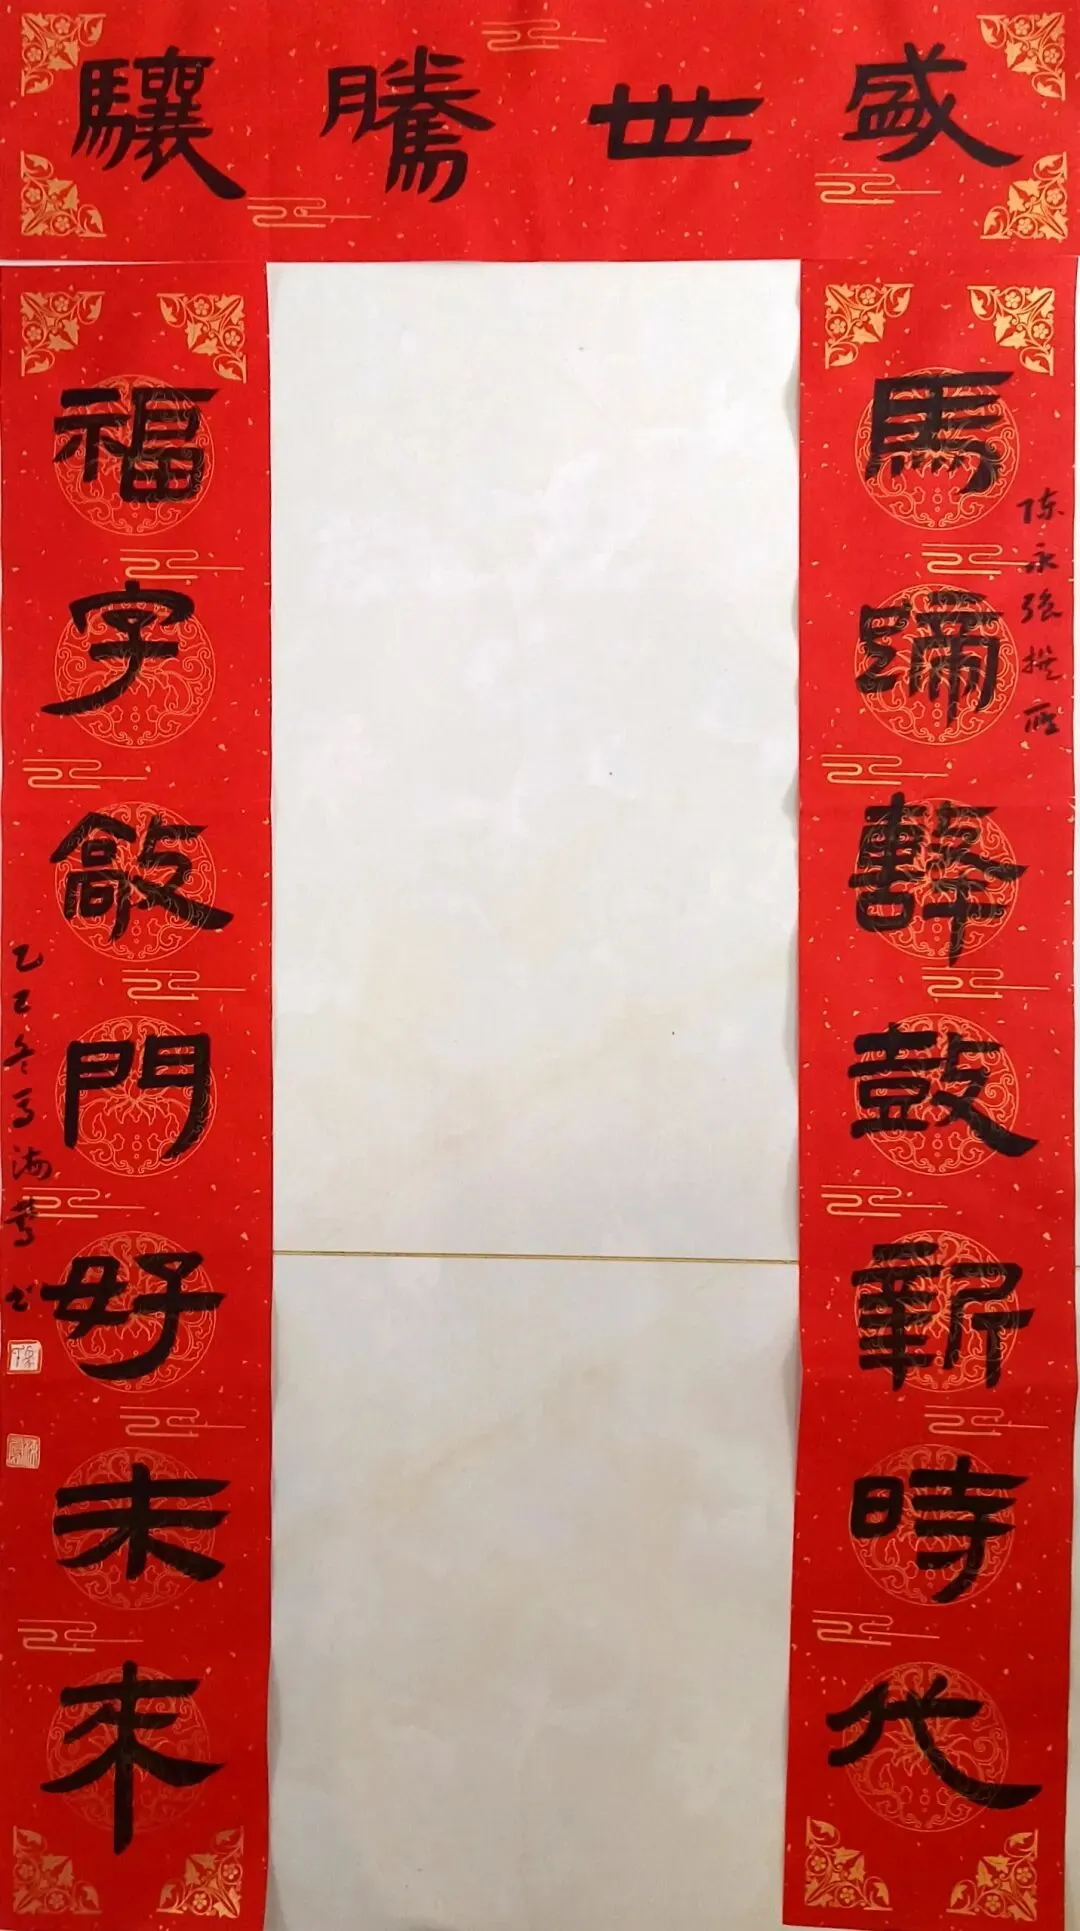 盛世騰驤
馬蹄擊鼓新時代
陈永强撰联
福字敲門好未来
乙巳冬马海书